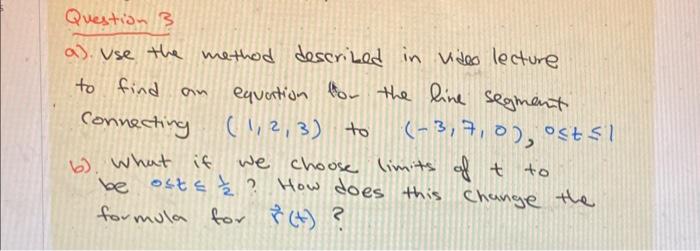 Question 3
a). Use the method described in video lecture
to find an equation for the line segment
connecting (1, 2, 3) to (-3, 7, 0), 0≤t≤1
b). What if we choose limits of t to
be 0≤t≤ 1/2 ? How does this change the
formula for r⃗(t) ?